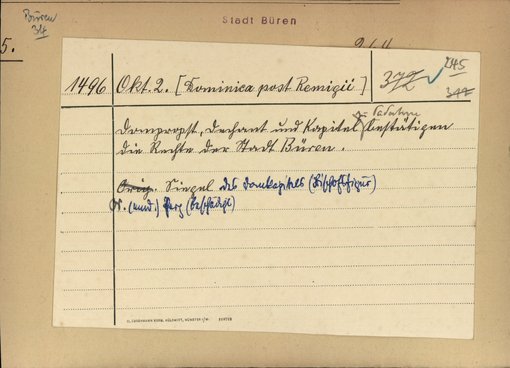 Büren
34
Stadt Büren
5.
264
1496 Okt. 2. [Dominica post Remigii] 372 245
344
zu Paderborn
Dompropst, Dechant und Kapitel bestätigen
die Rechte der Stadt Büren.
Orig. Siegel des Domkapitels (Bischofsfigur)
Or. (mud.) Perg (beschädigt)